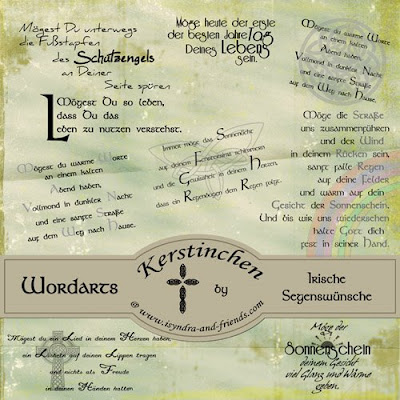 Mögest Du unterwegs
die Fußstapfen
des Schutzengels
an Deiner
Seite spüren
Möge heute der erste
der besten Jahre/Tag
Deines Lebens
sein.
Mögest du warme Worte
an einem kalten
Abend haben,
Vollmond in dunkler Nacht
und eine sanfte Straße
auf dem Weg nach Hause.
Mögest Du so leben,
dass Du das
Leben zu nutzen verstehst.
Immer möge das Sonnenlicht
auf deinem Fenstersims schimmern
und die Gewissheit in deinem Herzen,
dass ein Regenbogen dem Regen folgt.
Möge die Straße
uns zusammenführen
und der Wind
in deinem Rücken sein,
sanft falle Regen
auf deine Felder
und warm auf dein
Gesicht der Sonnenschein.
Und bis wir uns wiedersehen
halte Gott dich
fest in seiner Hand.
Mögest du warme Worte
an einem kalten
Abend haben,
Vollmond in dunkler Nacht
und eine sanfte Straße
auf dem Weg nach Hause.
Wordarts
Kerstinchen
by
@ www.isyndra-and-friends.com
Irische
Segenswünsche
Mögest du ein Lied in deinem Herzen haben,
ein Lächeln auf deinen Lippen tragen
und nichts als Freude
in deinen Händen halten
Möge der
Sonnenschein
deinem Gesicht
viel Glanz und Wärme
geben.